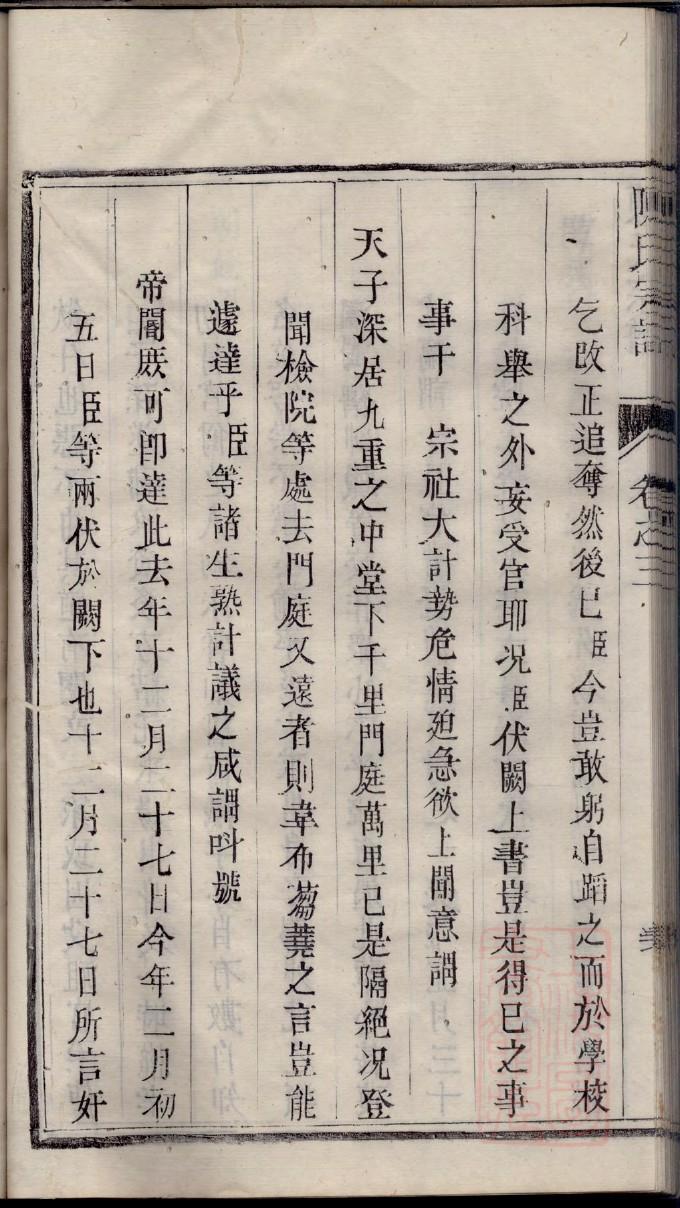 陳氏宗譜
卷之三
乞改正追奪然後已臣今豈敢躬自蹈之而於學校
科舉之外妄受官耶况臣伏闕上書豈是得已之事
事干　宗社大計勢危情廹急欲上聞意謂
天子深居九重之中堂下千里門庭萬里已是隔絕况登
聞檢院等處去門庭又遠者則韋布蒭蕘之言豈能
遽達乎臣等諸生熟計議之咸謂呌號
帝閽庶可卽達此去年十二月二十七日今年二月初
五日臣等兩伏於闕下也十二月二十七日所言奸